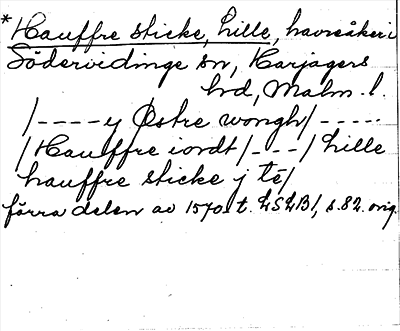 *Hauffre sticke, hille, havreåker i
Södervidinge sn, Harjagers
hd, Malm. l.
/----y Østre wongh/-----
/Hauffre iordt/---/hille
hauffre sticke j té/
förra delen av 1570-t. LSLB1, s.82. orig.